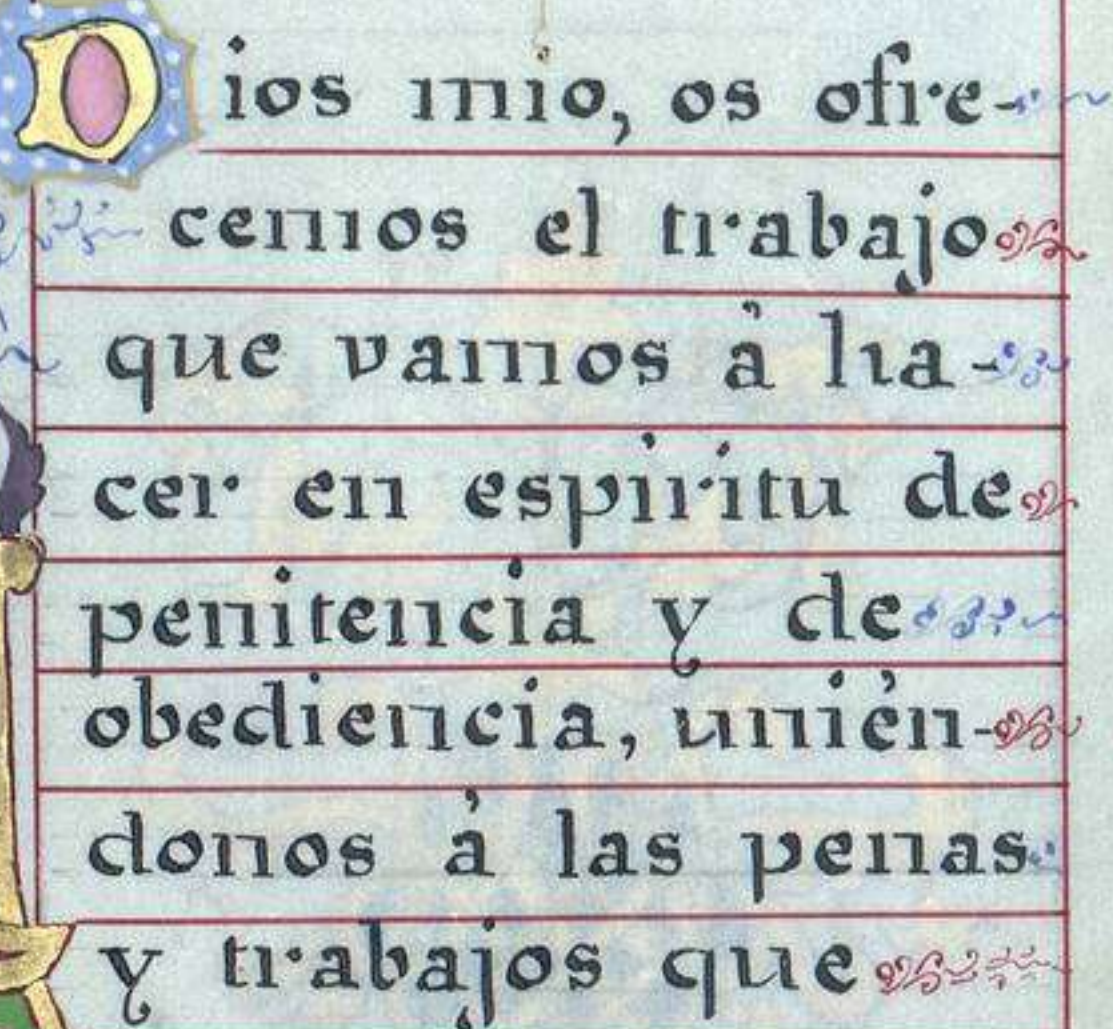 Dios mio, os ofre-
cemos el trabajo
que vamos á ha-
cer en espiritu de
penitencia y de
obediencia, unién-
donos á las penas
y trabajos que